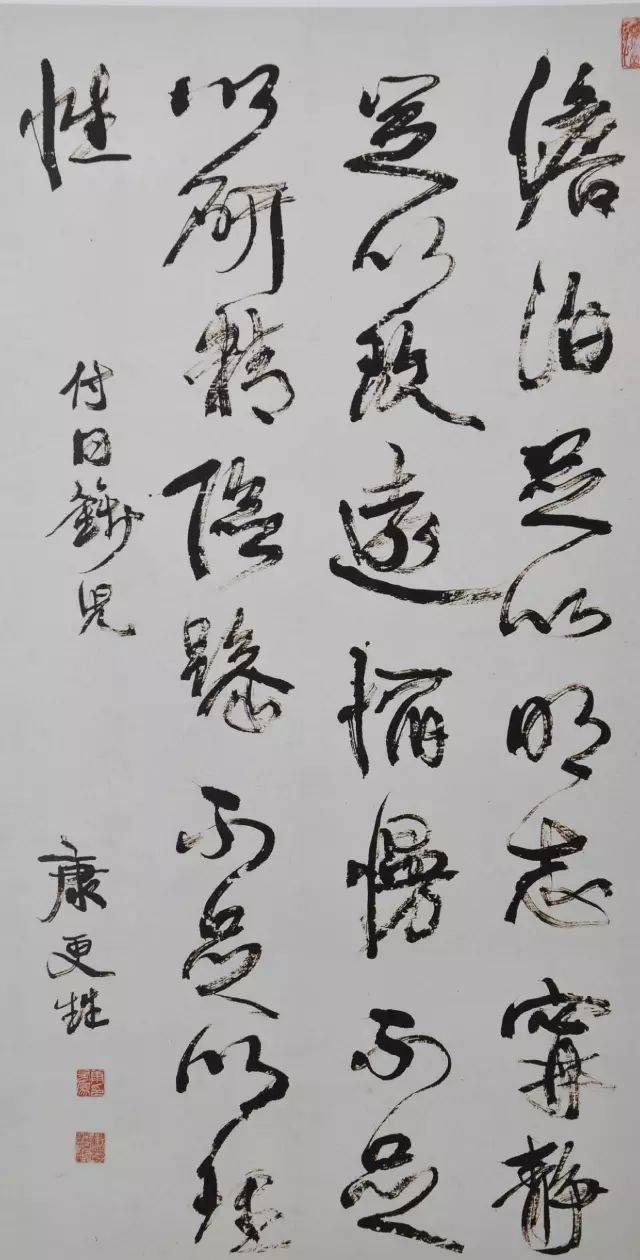 澹泊足以明志寧靜
足以致遠惰慢不足
以研精險躁不足以理
性
付同籛兒
康更甡